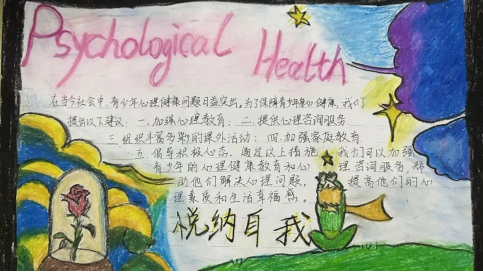 Psychological Health
在当今社会中，青少年心理健康问题日益突出。为了保障青少年身心健康，我们
提出以下建议：一、加强心理教育；二、提供心理咨询服务；
三、组织丰富多彩的课外活动；四、加强家庭教育
五、倡导积极心态。通过以上措施，我们可以加强
青少年的心理健康教育和心理咨询服务，帮
助他们解决心理问题。提高他们的心
理素质和生活幸福感。
悦纳自我